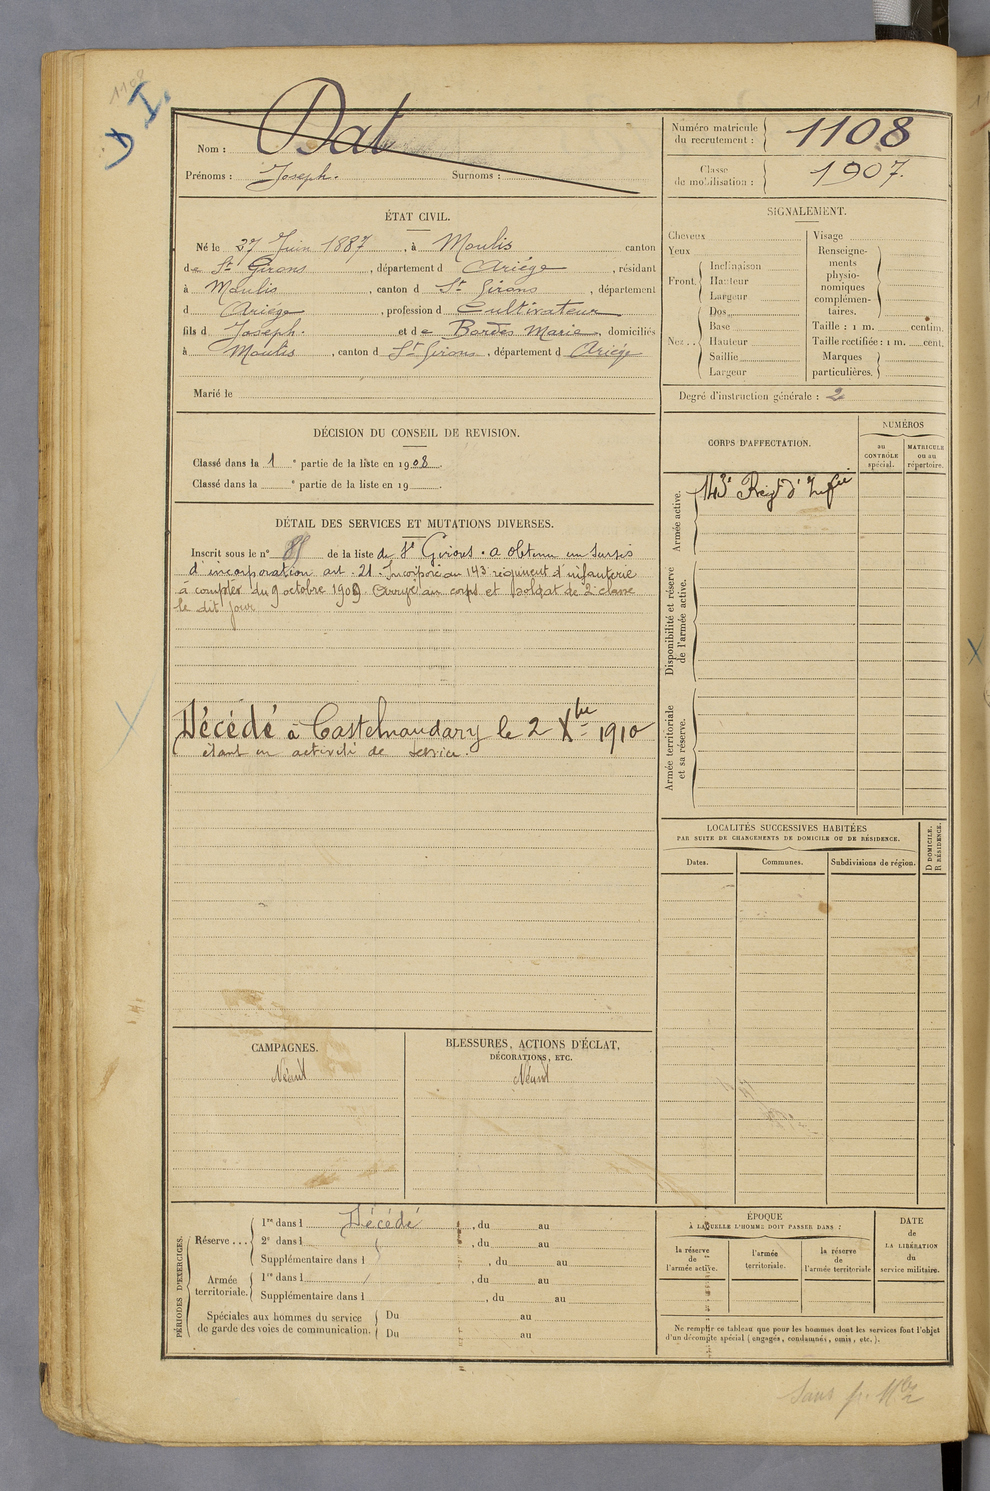 1108
I.
Nom : Dat
Prénoms : Joseph. Surnoms :
Numéro matricule du recrutement : 1108
Classe de mobilisation : 1907.
ÉTAT CIVIL.
Né le 27 Juin 1887, à Moulis canton
de St Girons, département d Ariège, résidant
à Moulis, canton d St Girons, département
d Ariège, profession d Cultivateur
fils d Joseph. et de Bordes Marie, domiciliés
à Moulis, canton d St Girons, département d Ariège
Marié le
SIGNALEMENT.
Cheveux
Yeux
Front. Inclinaison
Hauteur
Largeur
Nez.. Dos
Base
Hauteur
Saillie
Largeur
Visage
Renseigne-
ments
physio-
nomiques
complémen-
taires.
Taille : 1 m. centim.
Taille rectifiée : 1 m. cent.
Marques
particulières.
Degré d'instruction générale : 2
DÉCISION DU CONSEIL DE REVISION.
Classé dans la 1 e partie de la liste en 1908.
Classé dans la e partie de la liste en 19 .
CORPS D'AFFECTATION.
NUMÉROS
au
CONTRÔLE
spécial.
MATRICULE
ou au
répertoire.
Armée active.
143e Régt d'Infie
Disponibilité et réserve
de l'armée active.
Armée territoriale
et sa réserve.
DÉTAIL DES SERVICES ET MUTATIONS DIVERSES.
Inscrit sous le n° 85 de la liste de St Girons. a obtenu un sursis
d'incorporation art. 21. Incorporé au 143e régiment d'infanterie
à compter du 9 octobre 1909. Arrivé au corps et soldat de 2e classe
le dit jour
Décédé à Castelnaudary le 2 Xbre 1910
étant en activité de service.
LOCALITÉS SUCCESSIVES HABITÉES
PAR SUITE DE CHANGEMENTS DE DOMICILE OU DE RÉSIDENCE.
Dates.
Communes.
Subdivisions de région.
D DOMICILE.
R RÉSIDENCE.
CAMPAGNES.
Néant
BLESSURES, ACTIONS D'ÉCLAT,
DÉCORATIONS, ETC.
Néant
PÉRIODES D'EXERCICES.
Réserve... 1re dans l Décédé, du au
2e dans l , du au
Supplémentaire dans l , du au
Armée territoriale. 1re dans l , du au
Supplémentaire dans l , du au
Spéciales aux hommes du service
de garde des voies de communication. Du au
Du au
ÉPOQUE
À LAQUELLE L'HOMME DOIT PASSER DANS :
la réserve
de
l'armée active.
l'armée
territoriale.
la réserve
de
l'armée territoriale
DATE
de
LA LIBÉRATION
du
service militaire.
Ne remplir ce tableau que pour les hommes dont les services font l'objet
d'un décompte spécial (engagés, condamnés, omis, etc.).
Sans